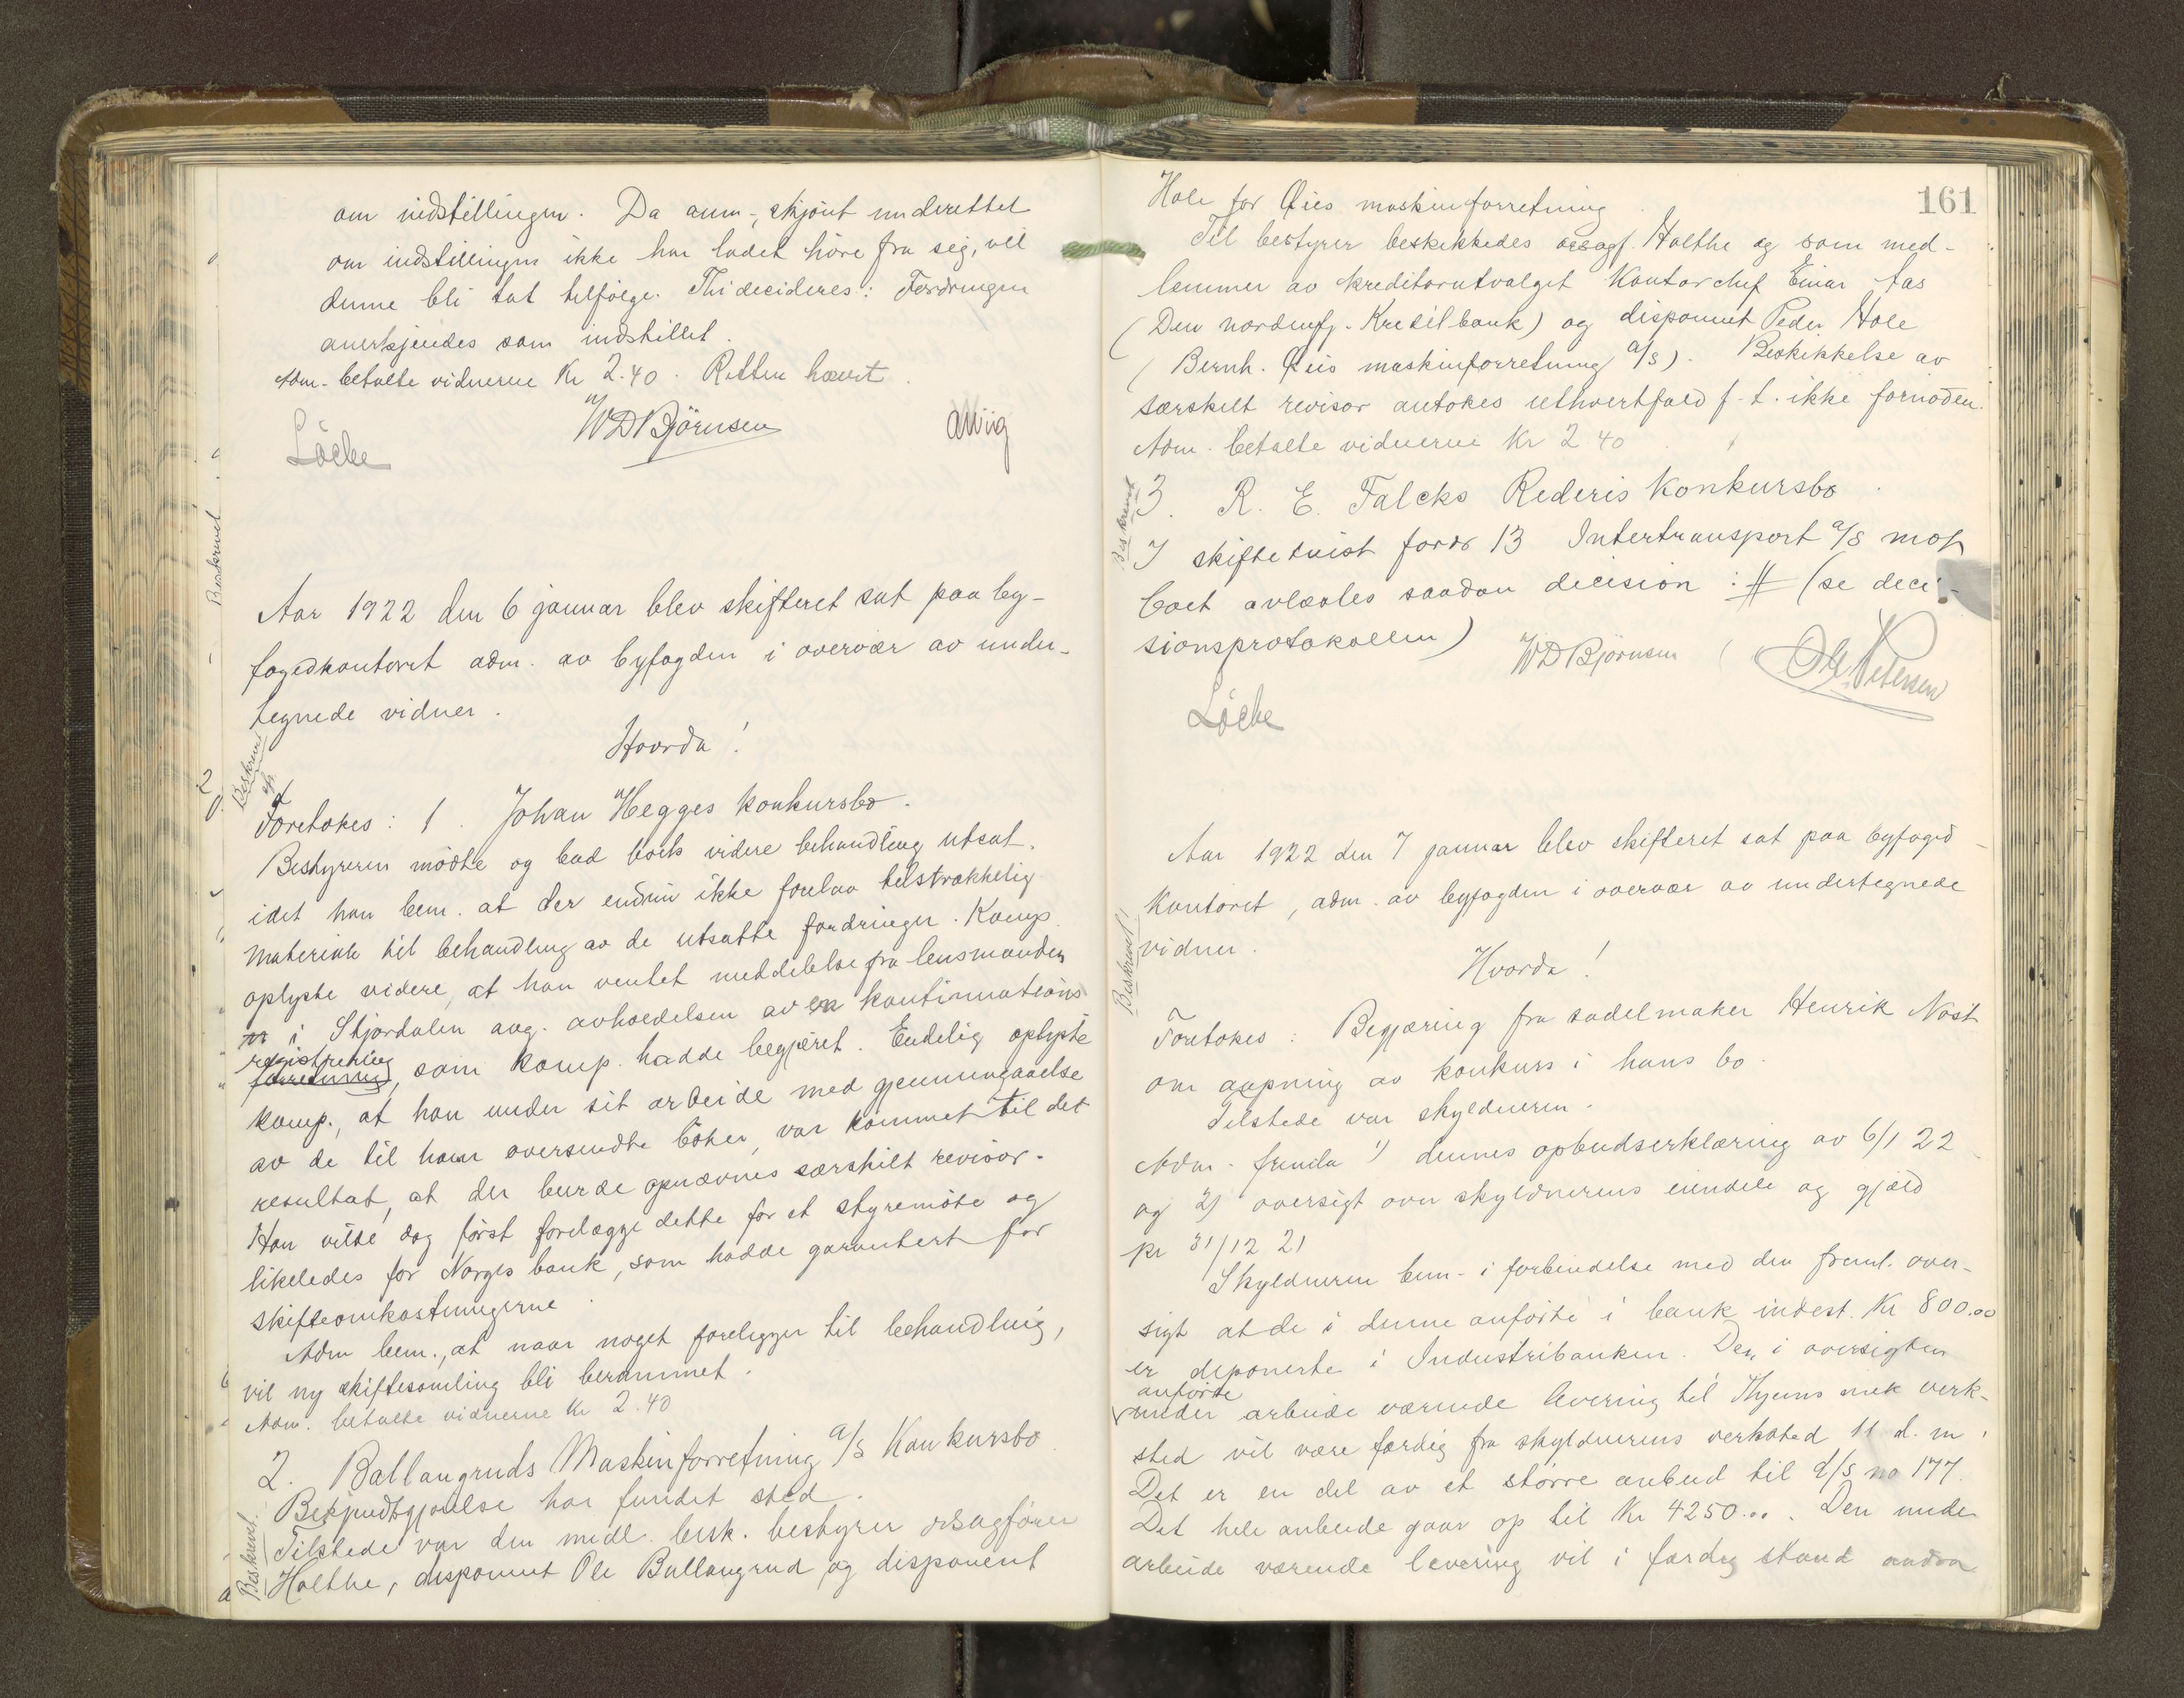 om indstillingen. Da anm., skjönt underettet
om indstillingen ikke har ladet höre fra sig, vil
denne bli tat tilfölge. Thi decideres: Fordringen
anerkjendes som indstillet.
Adm. betalte vidnerne Kr 2.40. Retten hævet.
WDBjörnsen
Löcke
Aar 1922 den 6 januar blev skifteret sat paa by-
fogedkontoret adm. av byfogden i overvær av under-
tegnede vidner.
Hvorda!
Beskrevet
Foretokes: 1. Johan Hegges konkursbo.
Bestyreren mödte og bad boets videre behandling utsat,
idet han bem. at der endnu ikke forelaa tilstrækkelig
materiale til behandling av de utsatte fordringer. Komp.
oplyste videre, at han ventet meddelelse fra lensmanden
i Stjördalen ang. avholdelsen av en kontinuations
registrering
forretning, som komp. hadde begjæret. Endelig oplyste
komp., at han under sit arbeide med gjennemgaaelse
av de til ham oversendte böker, var kommet til det
resultat, at der burde opnævnes særskilt revisor.
Han vilde dog först forelægge dette for et styremöte og
likeledes for Norges bank, som hadde garantert for
skifteomkostningerne.
Adm bem., at naar noget foreligger til behandling,
vil ny skiftesamling bli berammet.
Adm. betalte vidnerne Kr 2.40
2. Ballangruds Maskinforretning A/S Konkursbo
Bekjendtgjörelse har fundet sted.
Beskrevet.
Tilstede var den midl. besk. bestyrer orsagförer
Holthe, disponent Ole Ballangrud og disponent
161
Hole for Öies maskinforretning
Til bestyrer beskikkedes orsagf. Holthe og som med-
lemmer av kreditorutvalget Kontorchef Einar Aas
(Den nordenfj. Kreditbank) og disponent Peder Hole
(Bernh. Öies maskinforretning A/S). Beskikkelse av
særskilt revisor antokes ethvertfald f. t. ikke fornöden.
Adm. betalte vidnerne Kr 2.40
Beskrevet
3. R. E. Falcks Rederis Konkursbo.
I skiftetvist fordr 13 Intertransport A/S mot
boet avlæstes saadan decision: # (se deci-
sionsprotokollen)
WDBjörnsen
Ole Petersen
Löcke
Aar 1922 den 7 januar blev skifteret sat paa byfoged-
kontoret, adm. av byfogden i overvær av undertegnede
vidner.
Beskrevet!
Hvorda!
Foretokes: Begjæring fra sadelmaker Henrik Nöst
om aapning av konkurs i hans bo.
Tilstede var skyldneren.
Adm. fremla 1) dennes opbudserklæring av 6/1 22
og 2) oversigt over skyldnerens eiendele og gjæld
pr 31/12 21
Skyldneren bem. i forbindelse med den freml. over-
sigt at de i denne anförte i bank indest. Kr 800.00
er deponerte i Industribanken. Den i oversigten
anförte
under arbeide værende levering til Thjems mek verk-
sted vil være færdig fra skyldnerens verksted 11 d. m.
Det er en del av et större anbud til D/S no 177.
Det hele anbeide gaar op til Kr 4250.00. Den under
arbeide værende levering vil i færdig stand andra